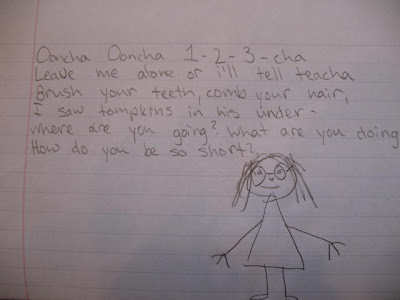 Ooncha Ooncha 1-2-3-cha
Leave me alone or i'll tell teacha
Brush your teeth, comb your hair,
I saw tompkins in his under-
where are you going? What are you doing
How do you be so short?